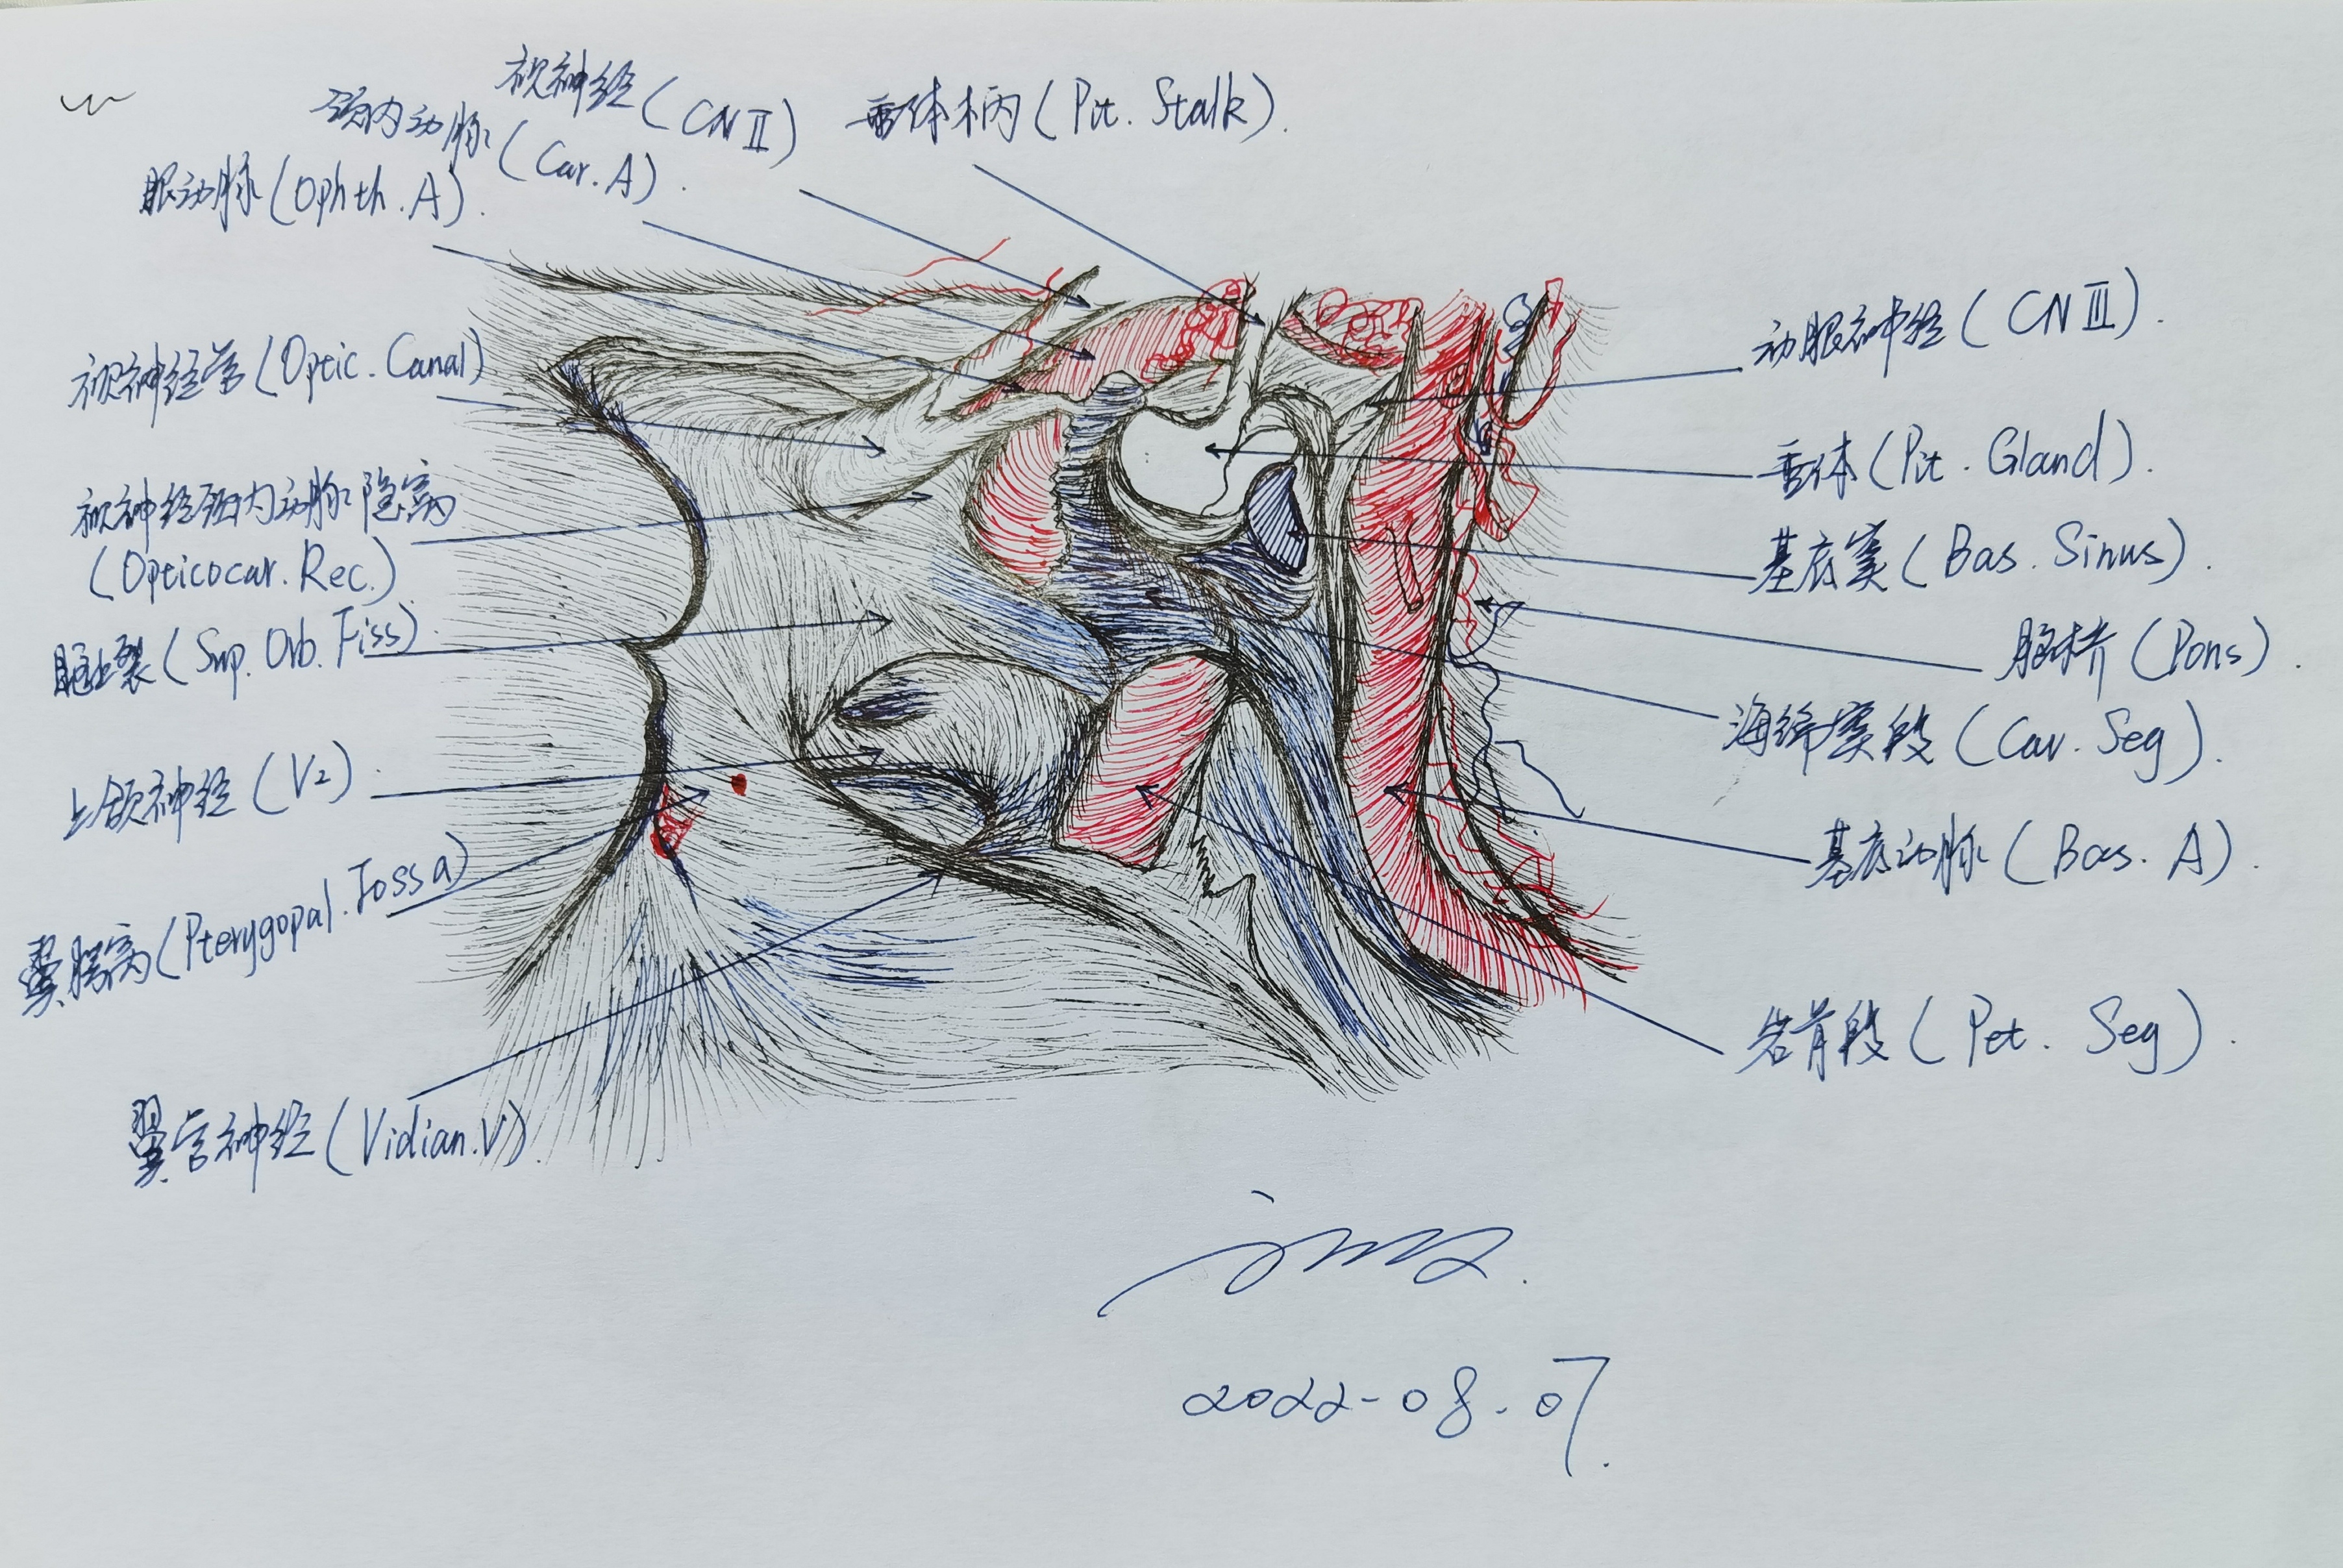 视神经(CN Ⅱ)
垂体柄(Pit. Stalk).
颈内动脉(Car.A).
眼动脉(Ophth.A).
视神经管(Optic.Canal)
视神经颈内动脉隐窝
(Opticocar.Rec.)
眶上裂(Sup.Orb.Fiss).
上颌神经(V2).
翼腭窝(Pterygopal.Fossa)
翼管神经(Vidian.V).
动眼神经(CN Ⅲ).
垂体(Pit. Gland).
基底窦(Bas. Sinus).
脑桥(Pons).
海绵窦段(Cav. Seg).
基底动脉(Bas. A).
岩骨段(Pet. Seg).
2022-08-07.